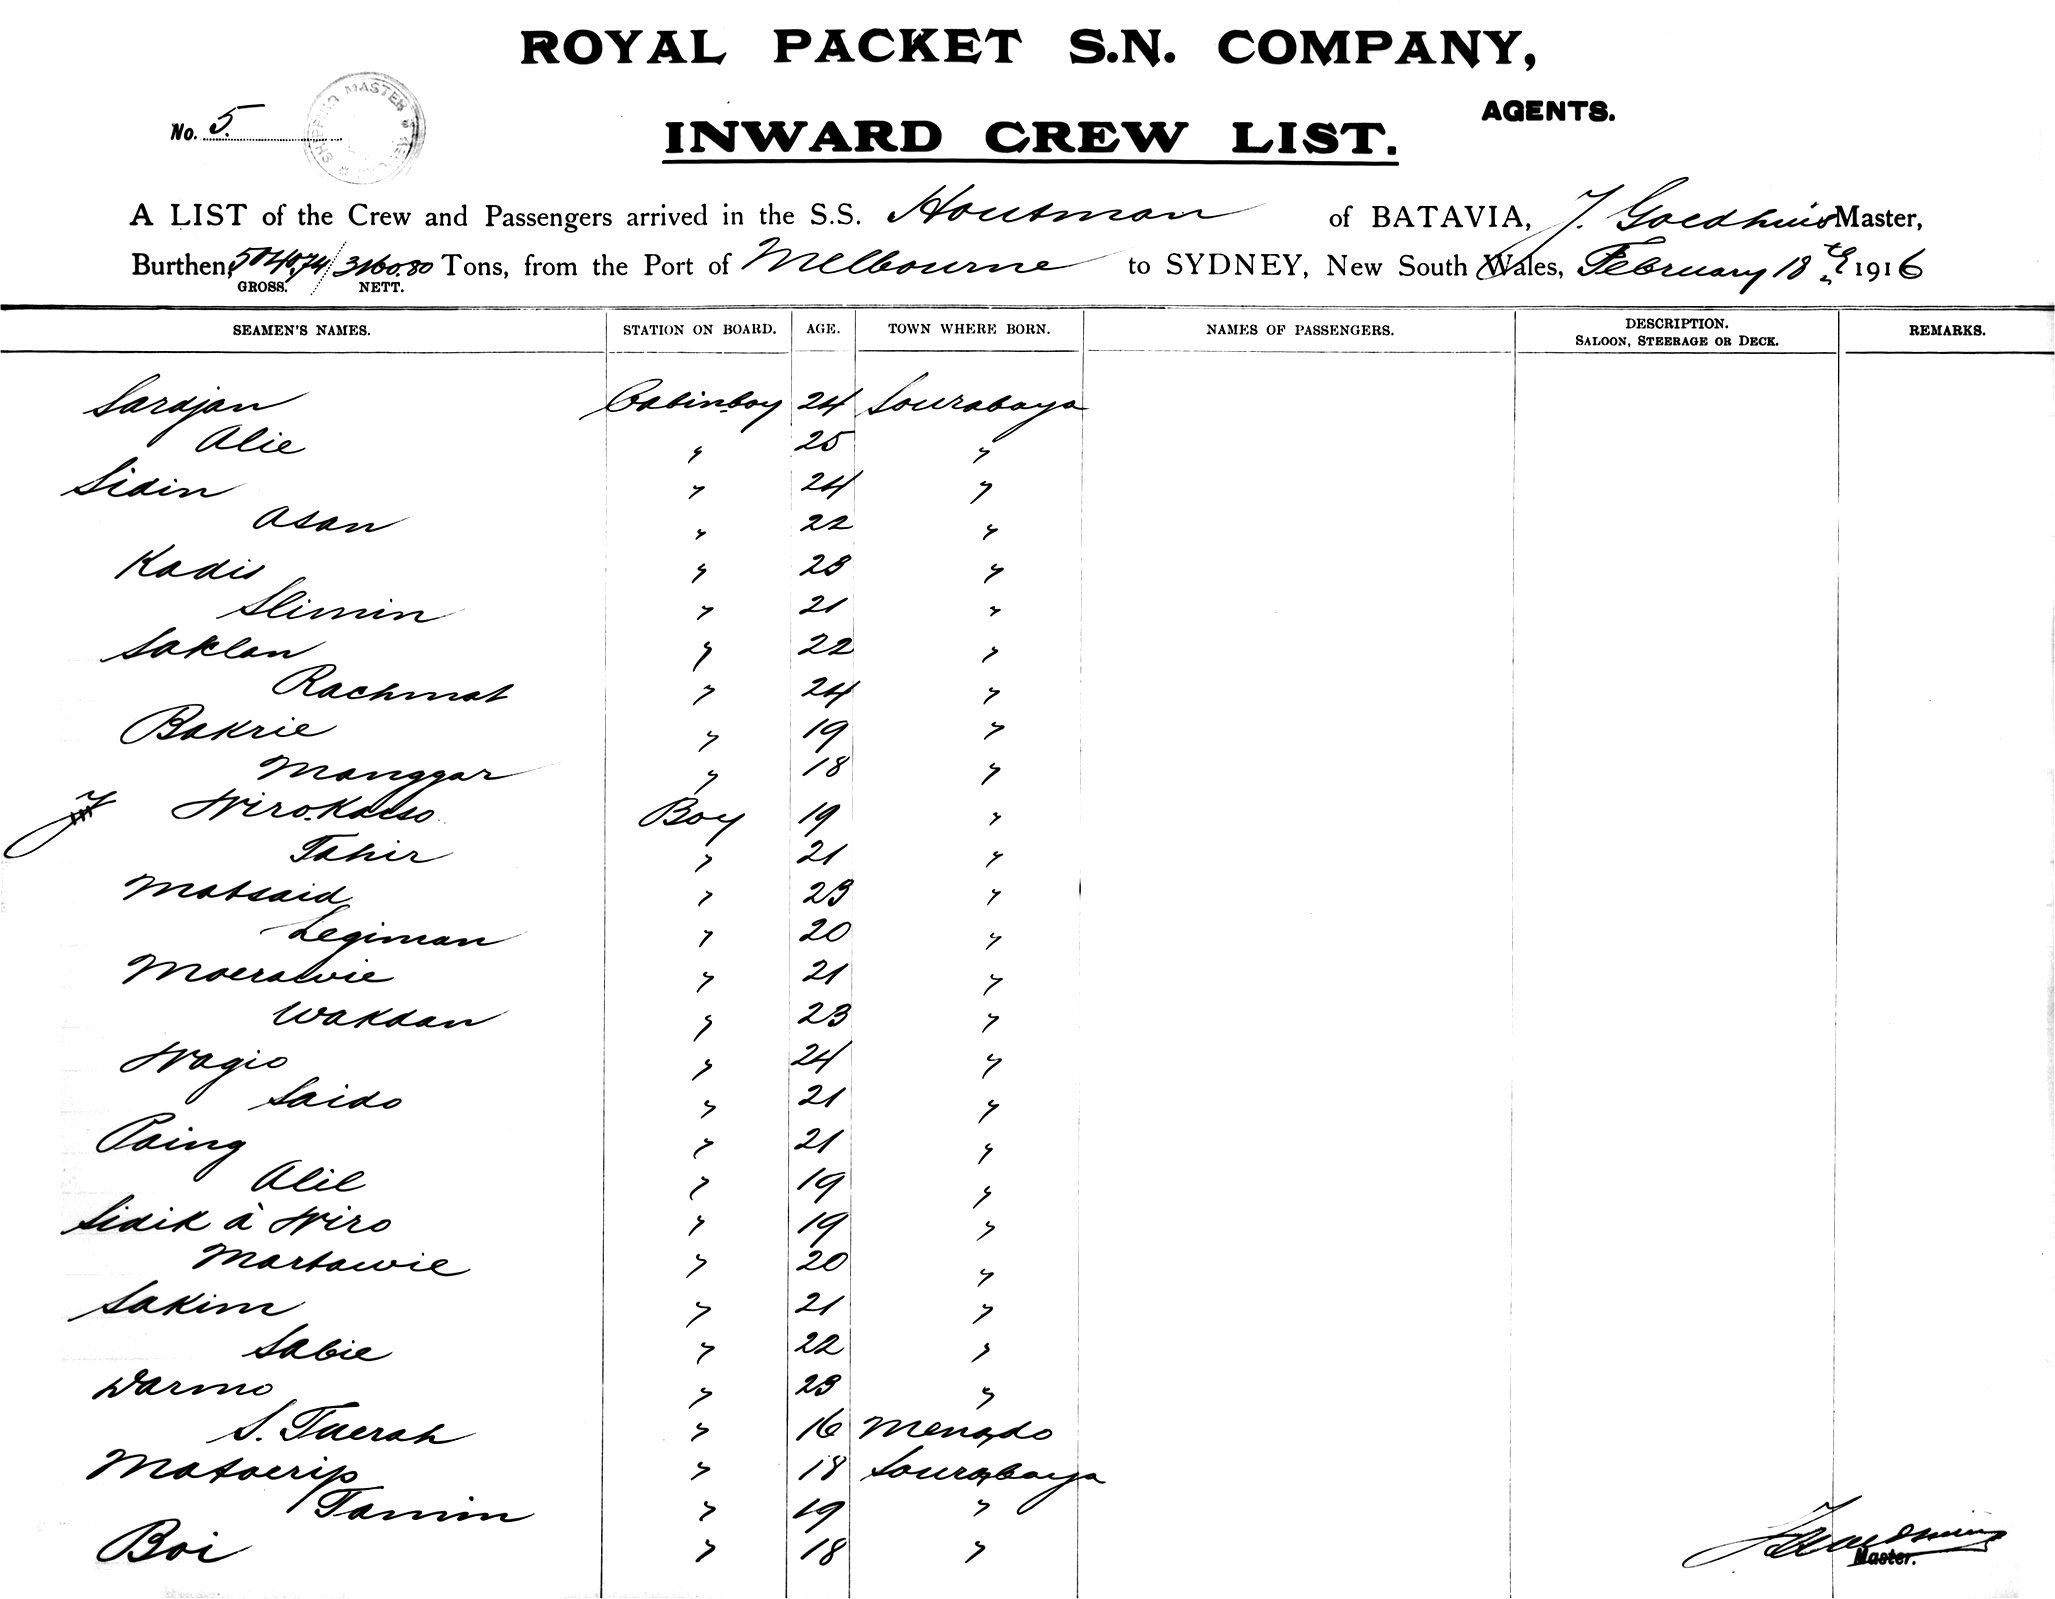 ROYAL PACKET S.N. COMPANY,
AGENTS.
No. 5.
SHIPPING MASTER
INWARD CREW LIST.
A LIST of the Crew and Passengers arrived in the S.S. Houtman of BATAVIA, J. Goedhuis Master,
Burthen 5040,74/3160.80 Tons, from the Port of Melbourne to SYDNEY, New South Wales, February 18th 1916
GROSS. NETT.
SEAMEN'S NAMES. STATION ON BOARD. AGE. TOWN WHERE BORN. NAMES OF PASSENGERS. DESCRIPTION. SALOON, STEERAGE OR DECK. REMARKS.
Sardjan Cabinboy 24 Sourabaya
Alie " 25 "
Sidin " 24 "
Asan " 22 "
Kadis " 23 "
Slimin " 21 "
Saklan " 22 "
Rachmat " 24 "
Bakrie " 19 "
Manggar " 18 "
Wiro.Karso Boy 19 "
Tahir " 21 "
Matsaid " 23 "
Legiman " 20 "
Moerawie " 21 "
Wakdan " 23 "
Wagio " 24 "
Saido " 21 "
Paing " 21 "
Alil " 19 "
Sidik à Wiro " 19 "
Martawie " 20 "
Sakim " 21 "
Sabie " 22 "
Darmo " 23 "
S. Tuerah " 16 Menado
Matoerip " 18 Sourabaya
Tamim " 19 "
Boi " 18 "
J. Goedhuis
Master.